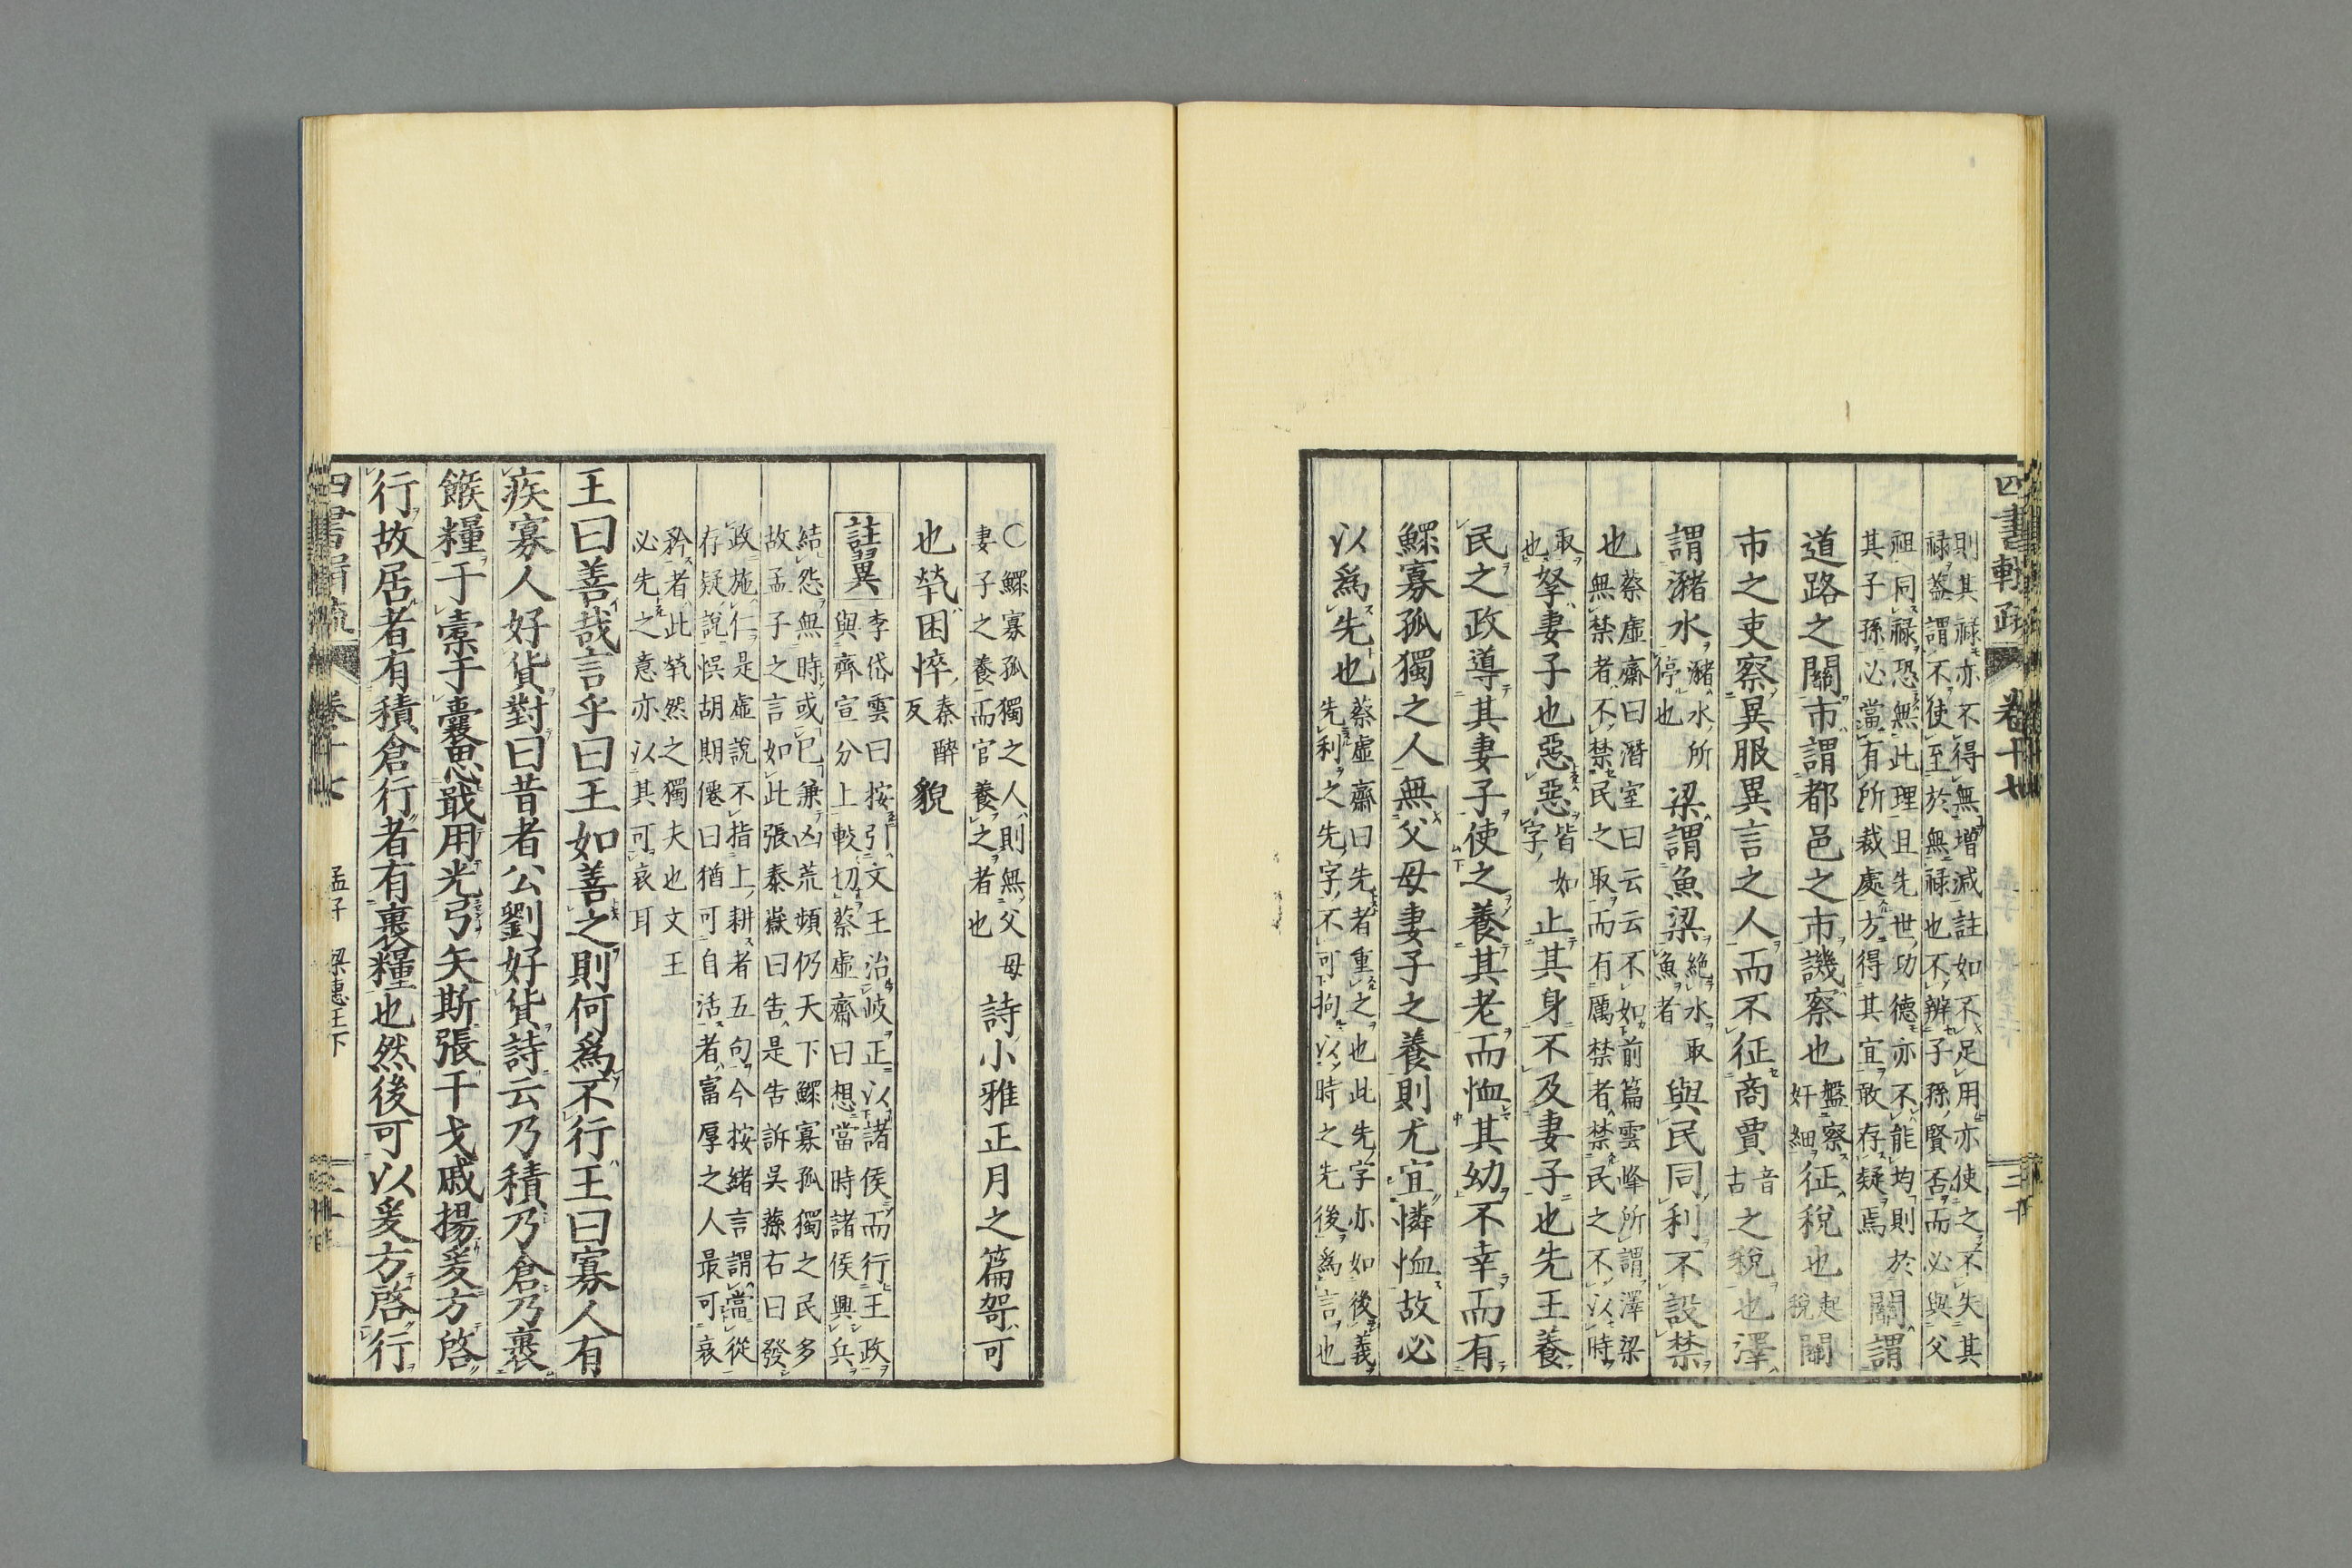 四書輯疏 卷十七 三十
則其祿亦不得無增減註如不足用亦使之不失其
祿蓋謂不使至於無祿也不辨子孫賢否而必與父
祖同祿恐無此理且先世功德亦不能均則於
其子孫必當有所裁處方得其宜敢存疑焉
關謂
道路之關市謂都邑之市譏察也
盤察
奸細
征稅也
起
稅
關
市之吏察異服異言之人而不征商賈
音
古
之稅也澤
謂瀦水
瀦水所
停也
梁謂魚梁
絶水取
魚者
與民同利不設禁
也
蔡虛齋曰潛室曰云云不如前篇雲峰所謂澤梁
無禁者不禁民之取而有厲禁者禁民之不以時
取
也
孥妻子也惡惡
皆如
字
止其身不及妻子也先王養
民之政導其妻子使之養其老而恤其幼不幸而有
鰥寡孤獨之人無父母妻子之養則尤宜憐恤故必
以爲先也
蔡虛齋曰先者重之也此先字亦如後義
先利之先字不可拘以時之先後爲言也
○鰥寡孤獨之人則無父母
妻子之養而官養之者也
詩小雅正月之篇哿可
也煢困悴
秦醉
反
貌
註異
李岱雲曰按引文王治岐正以諸侯而行王政
與齊宣分上較切蔡虛齋曰想當時諸侯興兵
結怨無時或已兼凶荒頻仍天下鰥寡孤獨之民多
故孟子之言如此張泰嶽曰告是告訴吳蓀右曰發
政施仁是虛說不指上耕者五句今按緒言謂當從
存疑說悞胡期僊曰猶可自活者富厚之人最可哀
矜者此煢然之獨夫也文王
必先之意亦以其可哀耳
王曰善哉言乎曰王如善之則何爲不行王曰寡人有
疾寡人好貨對曰昔者公劉好貨詩云乃積乃倉乃裹
餱糧于橐于囊思戢用光弓矢斯張干戈戚揚爰方啓
行故居者有積倉行者有裹糧也然後可以爰方啓行
四書輯疏 卷十七 孟子 梁惠王下